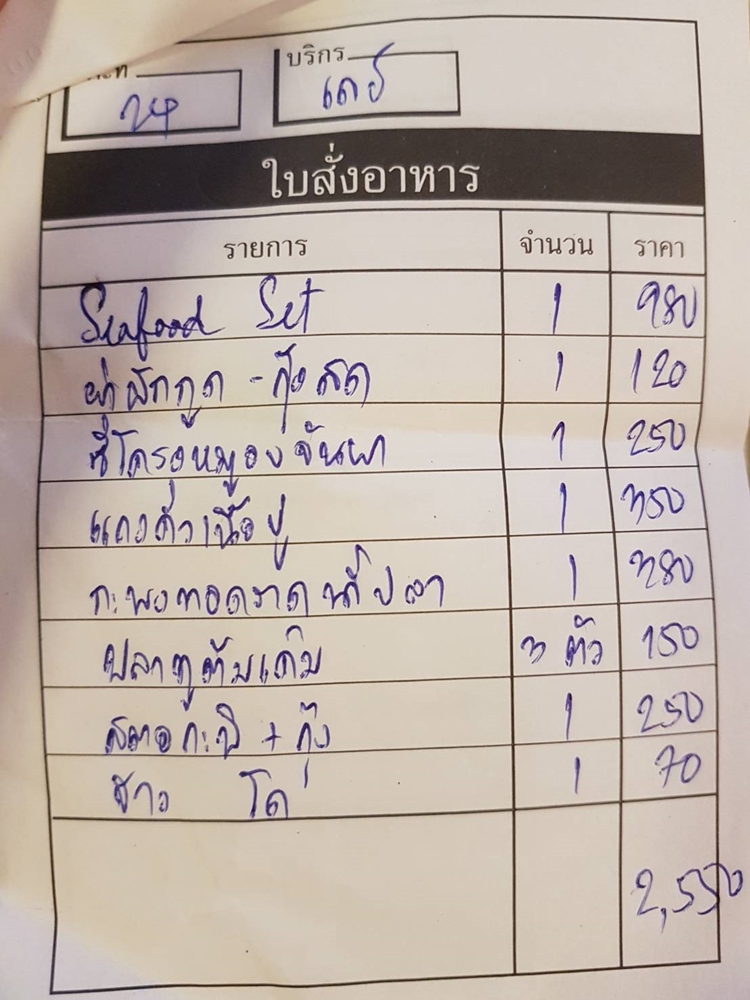 บริกร
ใบสั่งอาหาร
รายการ จำนวน ราคา
Seafood Set 1 980
ยำผักกูด - กุ้งสด 1 120
ซี่โครงหมูอบจันผา 1 250
แกงคั่วเนื้อปู 1 350
กะพงทอดราดน้ำปลา 1 380
ปลาทูต้มเค็ม 3 ตัว 150
สตอกะปิ + กุ้ง 1 250
ข้าว โถ 1 70
2,550